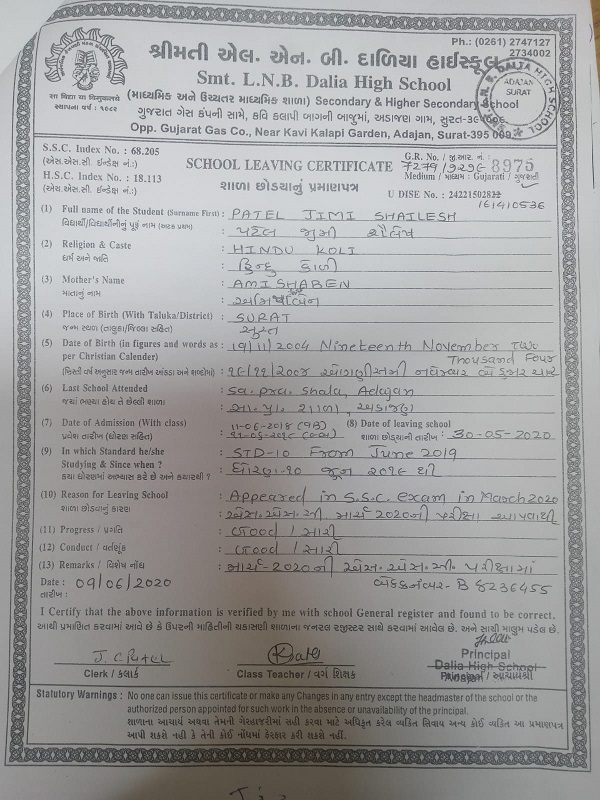 Ph.: (0261) 2747127
2734002
શ્રીમતી એલ. એન. બી. દાળિયા હાઈસ્કૂલ
Smt. L.N.B. Dalia High School
(માધ્યમિક અને ઉચ્ચતર માધ્યમિક શાળા) Secondary & Higher Secondary School
ગુજરાત ગેસ કંપની સામે, કવિ કલાપી બાગની બાજુમાં, અડાજણ ગામ, સુરત-૩૯૫૦૦૯.
Opp. Gujarat Gas Co., Near Kavi Kalapi Garden, Adajan, Surat-395 009.
સા વિદ્યા યા વિમુક્તયે
સ્થાપના વર્ષ : ૧૯૮૨
L.N.B. DALIA HIGH SCHOOL
ADAJAN
SURAT
S.S.C. Index No. : 68.205
(એસ.એસ.સી. ઈન્ડેક્ષ નં.:)
H.S.C. Index No. : 18.113
(એચ.એસ.સી. ઈન્ડેક્ષ નં.:)
SCHOOL LEAVING CERTIFICATE
શાળા છોડયાનું પ્રમાણપત્ર
G.R. No. / જી.આર. નં. :
7279/૭૨૭૯ 8975
Medium / માધ્યમ : Gujarati / ગુજરાતી
U DISE No. : 24221502822
161410536
(1) Full name of the Student (Surname First) : PATEL JIMI SHAILESH
વિદ્યાર્થી/વિદ્યાર્થીનીનું પૂરૂં નામ (અટક પ્રથમ) : પટેલ જીમી શૈલેષ
(2) Religion & Caste : HINDU KOLI
ધર્મ અને જાતિ : હિન્દુ કોળી
(3) Mother's Name : AMISHABEN
માતાનું નામ :
(4) Place of Birth (With Taluka/District) : SURAT
જન્મ સ્થળ (તાલુકા/જિલ્લા સહિત) : સુરત
(5) Date of Birth (in figures and words as : 19/11/2004 Nineteenth November Two
per Christian Calender) Thousand Four
(ખ્રિસ્તી વર્ષ અનુસાર જન્મ તારીખ આંકડા અને શબ્દોમાં) : ૧૯/૧૧/૨૦૦૪ ઓગણીસમી નવેમ્બર બે હજાર ચાર
(6) Last School Attended : Sa. pra. Shala, Adajan
જ્યાં ભણ્યા હોય તે છેલ્લી શાળા : સા. પ્રા. શાળા, અડાજણ
(7) Date of Admission (With class) : 11-06-2018 (9B) (8) Date of leaving school
પ્રવેશ તારીખ (ધોરણ સહિત) : ૧૧-૦૬-૨૦૧૮ શાળા છોડયાની તારીખ : 30-05-2020
(9) In which Standard he/she : STD-10 From June 2019
Studying & Since when ? : ધોરણ-૧૦ જૂન ૨૦૧૯ થી
કયા ધોરણમાં અભ્યાસ કરે છે અને કયારથી ?
(10) Reason for Leaving School : Appeared in S.S.C. exam in March 2020
શાળા છોડવાનું કારણ : એસ.એસ.સી. માર્ચ ૨૦૨૦ની પરીક્ષા આપવાથી
(11) Progress / પ્રગતિ : Good / સારી
(12) Conduct / વર્તણુંક : Good / સારી
(13) Remarks / વિશેષ નોંધ : માર્ચ-૨૦૨૦ની એસ.એસ.સી. પરીક્ષામાં
Date : 09/06/2020 બેઠકનંબર- B 8236455
તારીખ :
I Certify that the above information is verified by me with school General register and found to be correct.
આથી પ્રમાણિત કરવામાં આવે છે કે ઉપરની માહિતીની ચકાસણી શાળાના જનરલ રજીસ્ટર સાથે કરવામાં આવેલ છે. અને સાચી માલુમ પડેલ છે.
J. C. Patel
Clerk / કલાર્ક
Class Teacher / વર્ગ શિક્ષક
Principal
Dalia High School
Principal / આચાર્યશ્રી
Statutory Warnings : No one can issue this certificate or make any Changes in any entry except the headmaster of the school or the
authorized person appointed for such work in the absence or unavailability of the principal.
શાળાના આચાર્ય અથવા તેમની ગેરહાજરીમાં સહી કરવા માટે અધિકૃત કરેલ વ્યક્તિ સિવાય અન્ય કોઈ વ્યક્તિ આ પ્રમાણપત્ર
આપી શકશે નહીં કે તેની કોઈ નોંધમાં ફેરફાર કરી શકશે નહીં.